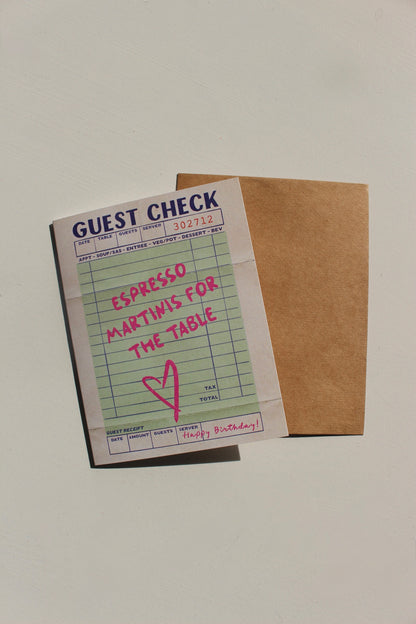 GUEST CHECK
DATE TABLE GUESTS SERVER 302712
APPT - SOUP/SAL - ENTREE - VEG/POT - DESSERT - BEV
ESPRESSO
MARTINIS FOR
THE TABLE
TAX
TOTAL
GUEST RECEIPT
DATE AMOUNT GUESTS SERVER Happy Birthday!